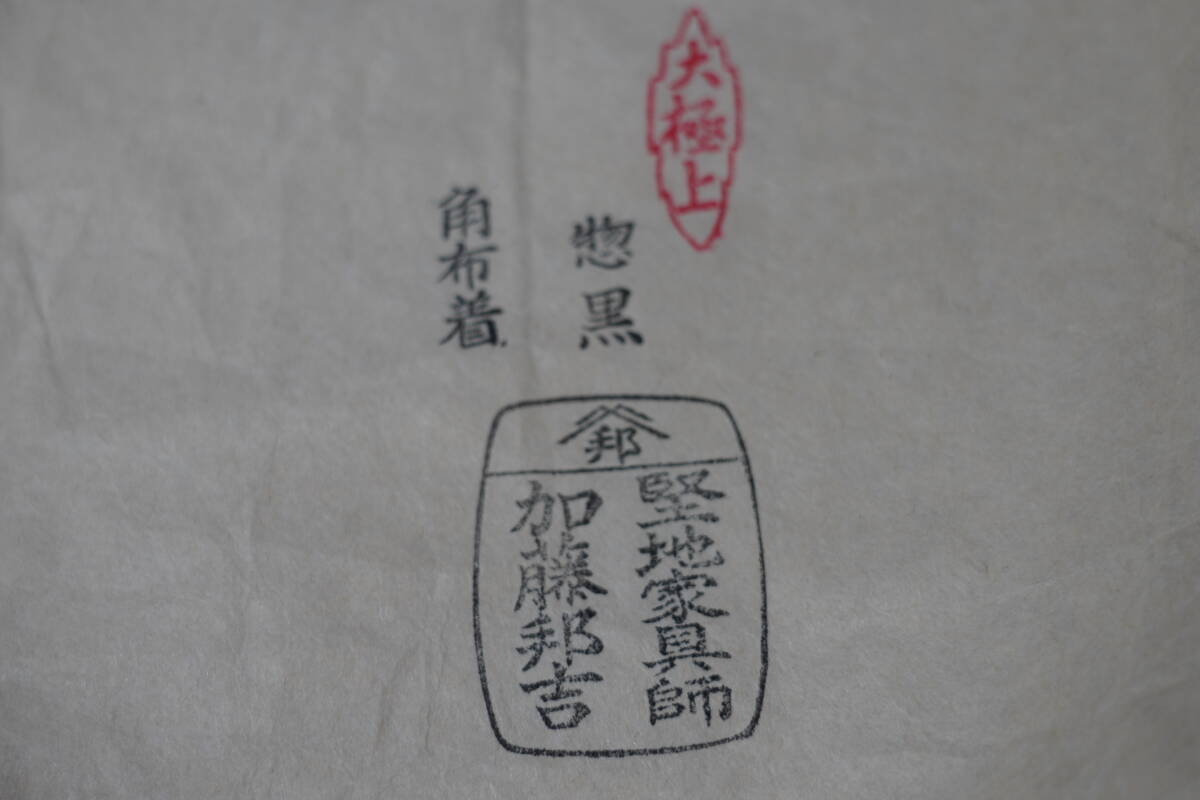 大極上
惣黒
角布着
邦
堅地家具師
加藤邦吉